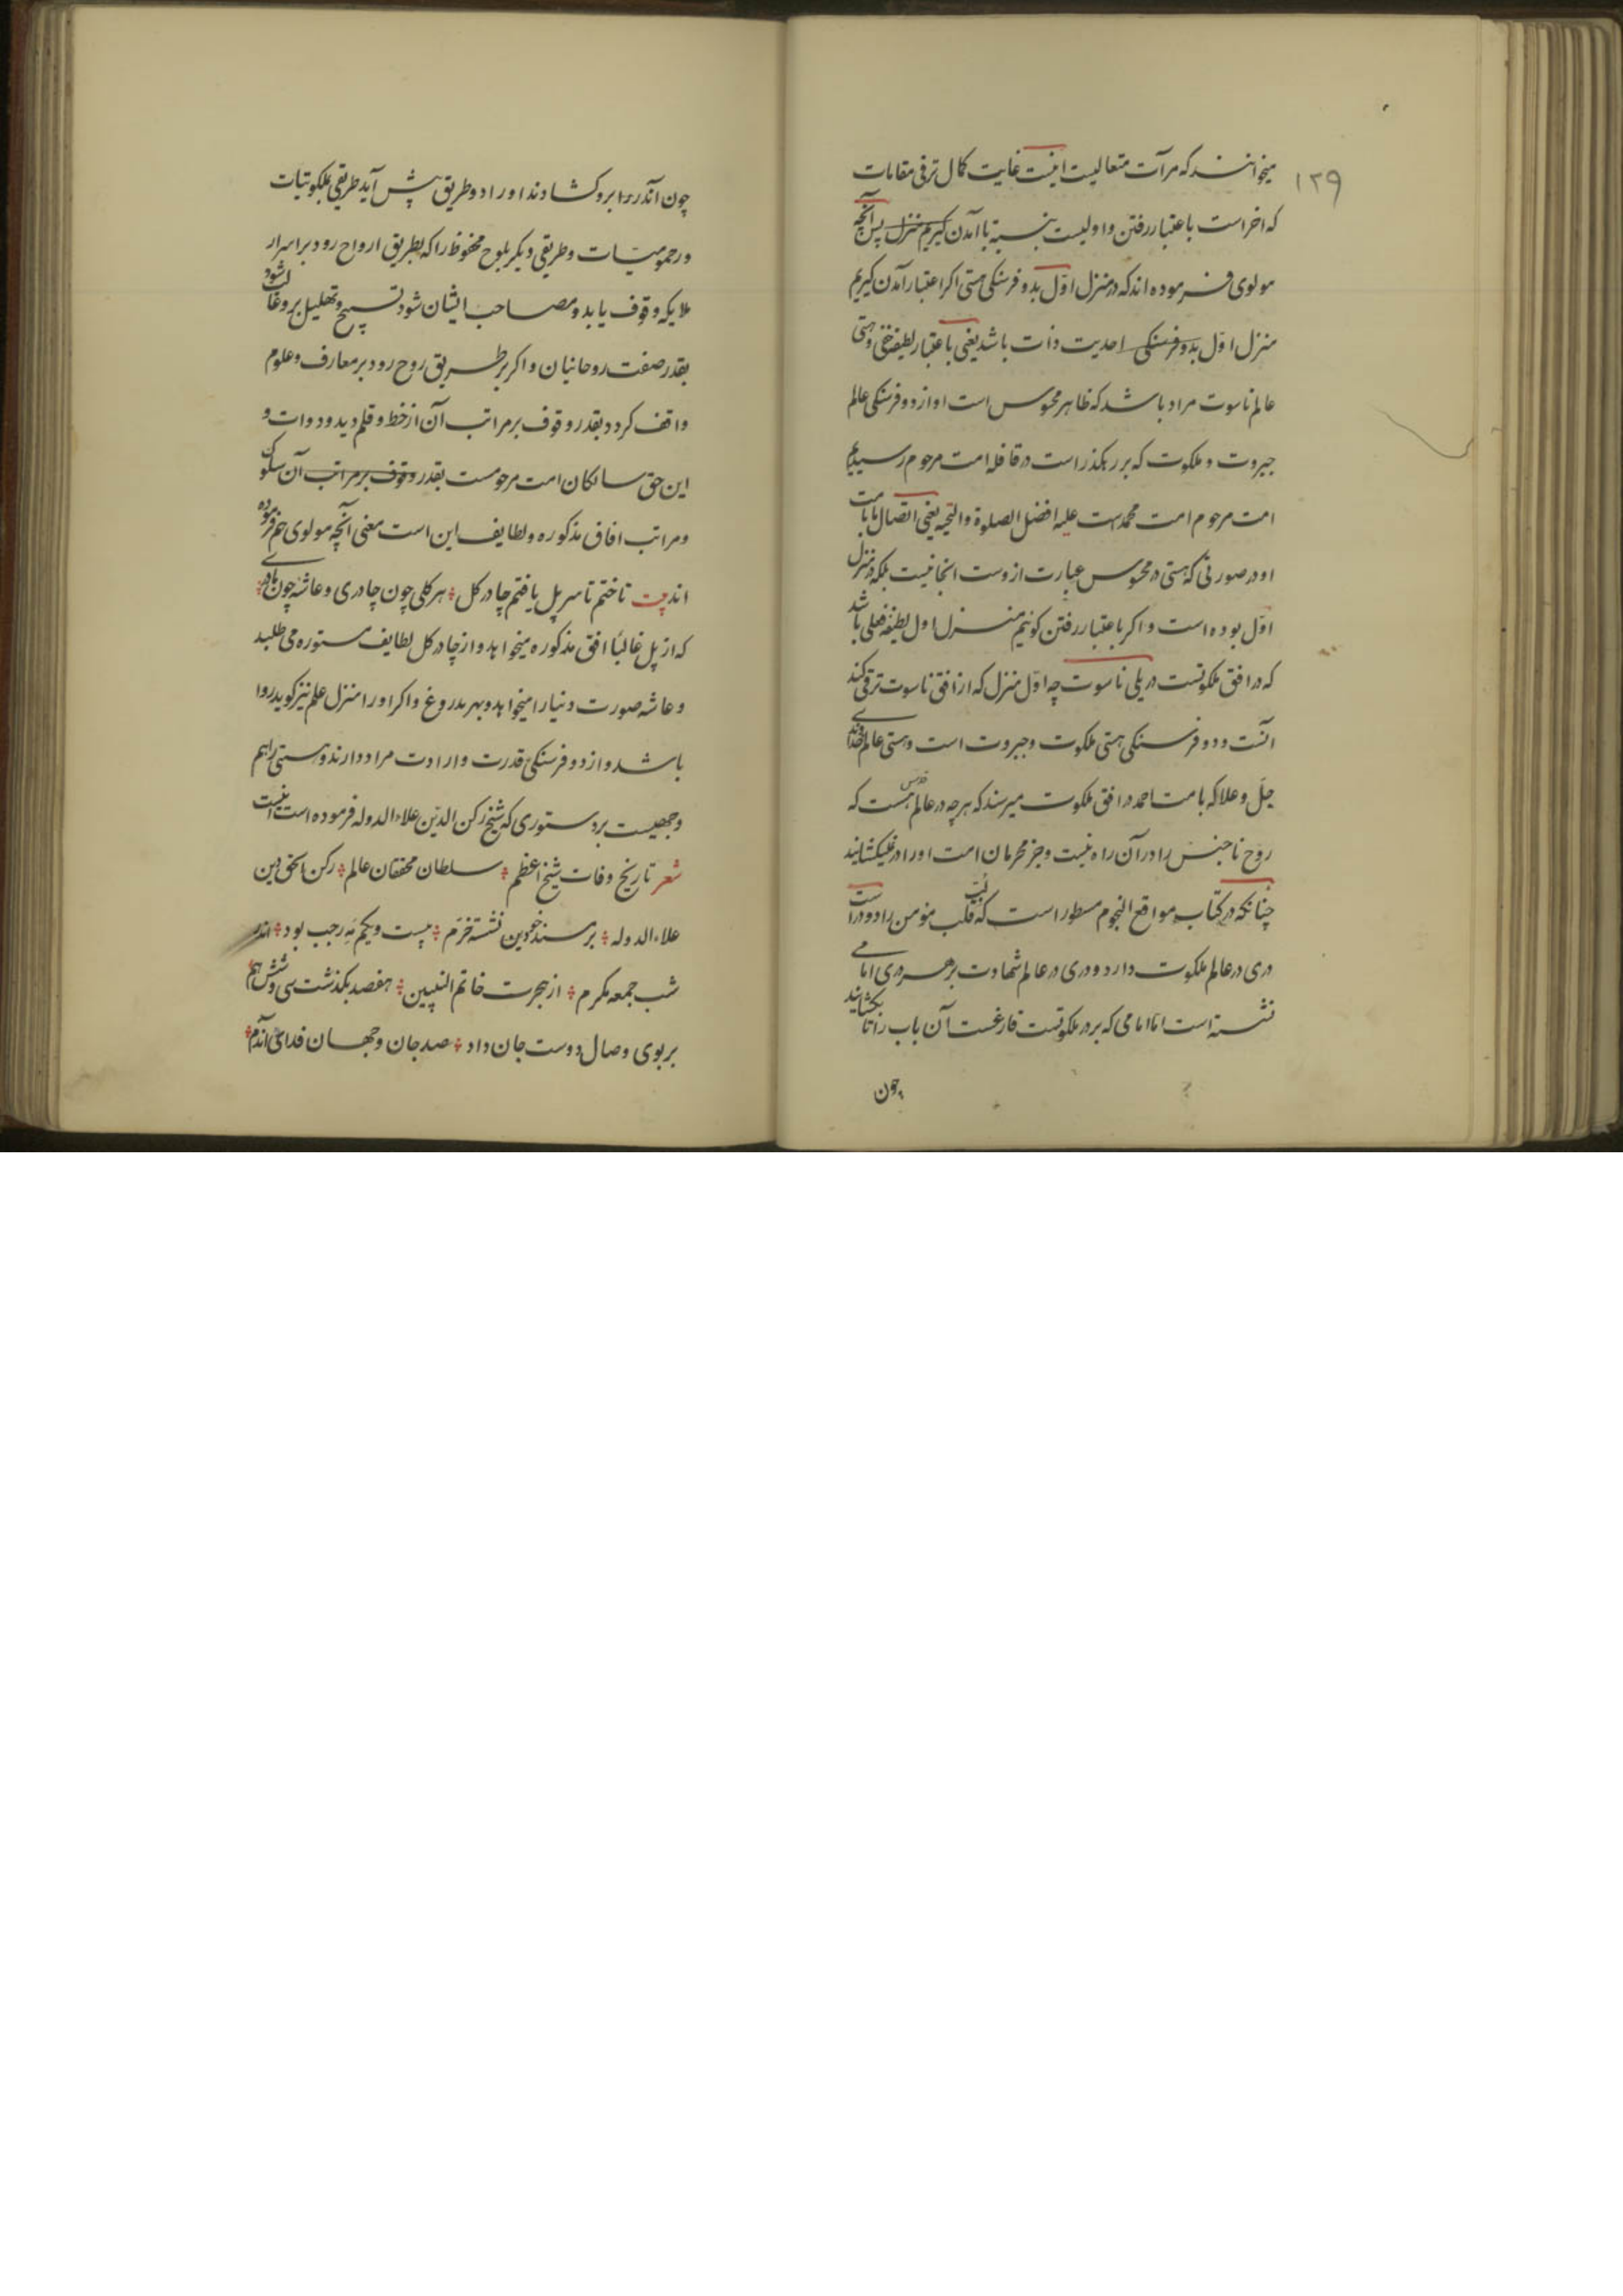 ۱۲۹
میخوانند که مرآت متعالیست اینست غایت کمال ترقی مقامات
که اخر است باعتبار رفتن و اولیست بنسبة با آمدن کیریم منزل پس آنچه
مولوی فرموده اند که در منزل اوّل بدو فرسنکی هستی اکر اعتبار آمدن کیریم
منزل اوّل بدو فرسنکی احدیت ذات باشد یعنی باعتبار لطیفه خفی و هستی
عالم ناسوت مراد باشد که ظاهر محسوس است او از دو فرسنکی عالم
جبروت و ملکوت که بر رهکذر است در قافله امت مرحوم رسیدیم
امت مرحوم امت محمدست علیه افضل الصلوة والتحیه یعنی اتصال با امت
او در صورتی که هستی در محسوس عبارت ازوست انجا نیست بلکه در منزل
اوّل بوده است و اکر باعتبار رفتن کوئیم منزل اول لطیفه باشد
که در افق ملکوتست در یلی ناسوت چه اوّل منزل که از افق ناسوت ترقی کند
آنست و دو فرسنکی هستی ملکوت و جبروت است و هستی عالم خداوندی
جلّ و علا که با امت احمد در افق ملکوت میرسند که هرچه در عالم قدس هست که
روح ناجنس را در آن راه نیست و جز محرمان امت او را در نمیکشایند
چنانکه در کتاب مواقع النجوم مسطور است که قلب مؤمن را دو در است
دری در عالم ملکوت دارد و دری در عالم شهادت بر هر دری امامی
نشسته است امّا امامی که بر در ملکوتست فارغست آن باب را تا بکشایند
چون
چون آندر را برو کشادند او را دو طریق پیش آید طریقی بملکوتیات
و رحمومیّات و طریقی دیکر بلوح محفوظ را که بطریق ارواح رود بر اسرار
ملایکه وقوف یابد و مصاحب ایشان شود تسبیح و تهلیل برو غالب شود
بقدر صفت روحانیان و اکر بر طریق روح رود بر معارف و علوم
واقف کردد بقدر وقوف بر مراتب آن از خط و قلم و ید و دوات و
این حق سالکان امت مرحومست بقدر وقوف بر مراتب آن سلوک
و مراتب افاق مذکوره و لطایف این است معنی آنچه مولوی هم فرموده
اند بیت تاختم تا سر پل یافتم چادر کل هر کلی چون چادری و عاشه چون بادری
که از پل غالباً افق مذکوره میخواهد و از چادر کل لطایف مستوره می طلبد
و عاشه صورت دنیا را میخواهد و بهر بدروغ و اکر او را منزل علم نیز کوید روا
باشد و از دو فرسنکی قدرت و ارادت مراد دارند و هستی را هم
وجهیست بر دستوری که شیخ رکن الدّین علاءالدوله فرموده است اینست
شعر تاریخ وفات شیخ اعظم سلطان محققان عالم رکن الحق دین
علاءالدوله بر مسند نشسته خرّم بیست و یکم مه رجب بود اندر
شب جمعه مکرم از هجرت خاتم النبیین هفصد بکذشت سی و شش هم
بر بوی وصال دوست جان داد صد جان و جهان فدای آندم